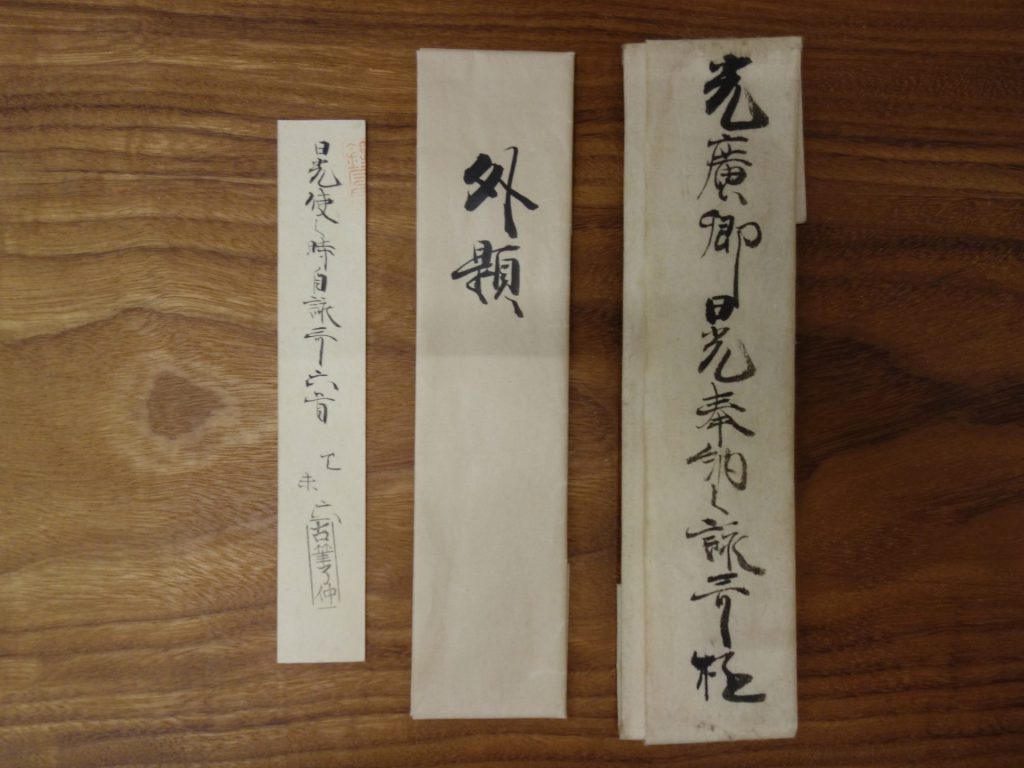 光廣卿日光奉納之詠哥極
外題
日光使之時自詠哥六首
未
六
古筆了仲